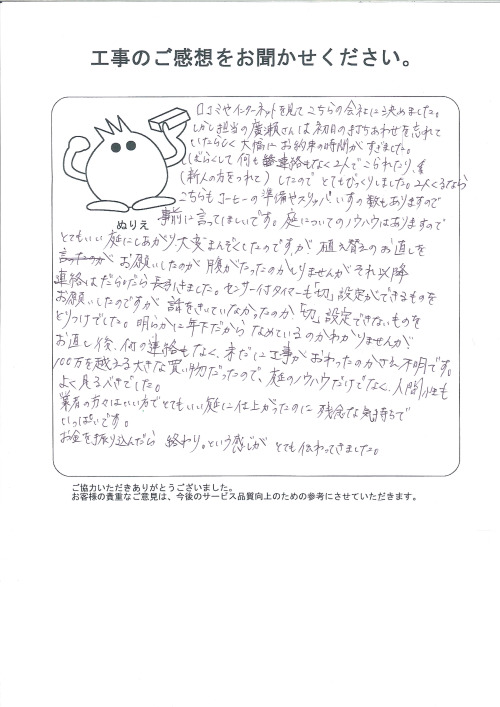 工事のご感想をお聞かせください。
口コミやインターネットを見てこちらの会社に決めました。
しかし担当の廣瀬さんは初日の打ちあわせを忘れて
いたらしく大幅にお約束の時間がすぎました。
しばらくして何も連絡もなく2人でこられたり、
(新人の方をつれて)したのでとてもびっくりしました。2人くるなら
こちらもコーヒーの準備やスリッパいすの数もありますので
ぬりえ
事前に言ってほしいです。庭についてのノウハウはありますので
とてもいい庭にしあがり大変まんぞくしたのですが 植え替えのお直しを
言ったのが お願いしたのが腹がたったのかしりませんがそれ以降
連絡はだらだら長引きました。センサー付タイマーも「切」設定ができるものを
お願いしたのですが 話をきいていなかったのか「切」設定できないものを
とりつけでした。明らかに年下だからなめているのかわかりませんが
お直し後、何の連絡もなく、未だに工事がおわったのかさえ不明です。
100万を越える大きな買い物だったので、庭のノウハウだけでなく、人間性も
よく見るべきでした。
業者の方々はいい方でとてもいい庭に仕上がったのに 残念な気持ちで
いっぱいです。
お金を振り込んだら 終わり。という感じが とても伝わってきました。
ご協力いただきありがとうございました。
お客様の貴重なご意見は、今後のサービス品質向上のための参考にさせていただきます。